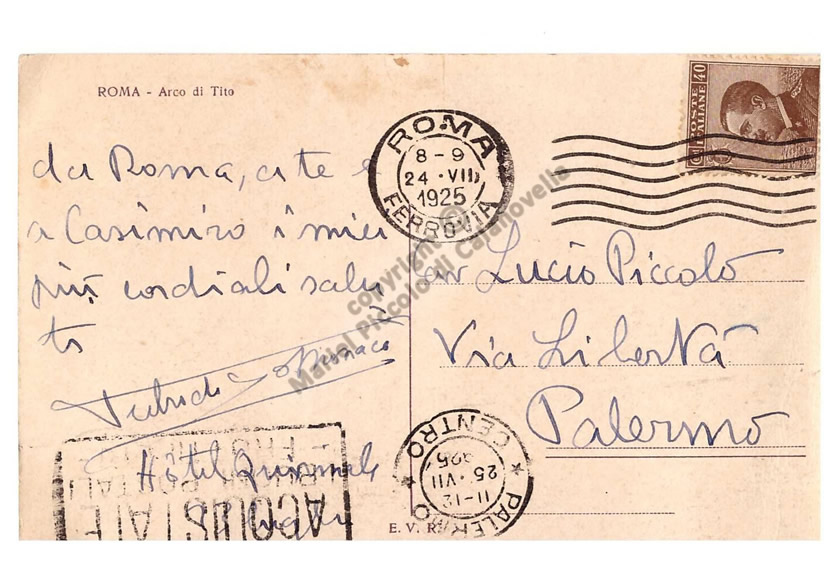 ROMA - Arco di Tito
da Roma, a te e
a Casimiro i miei
più cordiali salu
ti
Monaco
Hôtel Quirinale
ROMA
8-9
24 · VII
1925
FERROVIA
POSTE ITALIANE
Cent 40
Lucio Piccolo
Via Libertà
Palermo
PALERMO
CENTRO
11-12
25 · VII
925
ACQUISTATE
POSTALI
E. V. R.
copyright © Mahal Piccolo di Casanovella